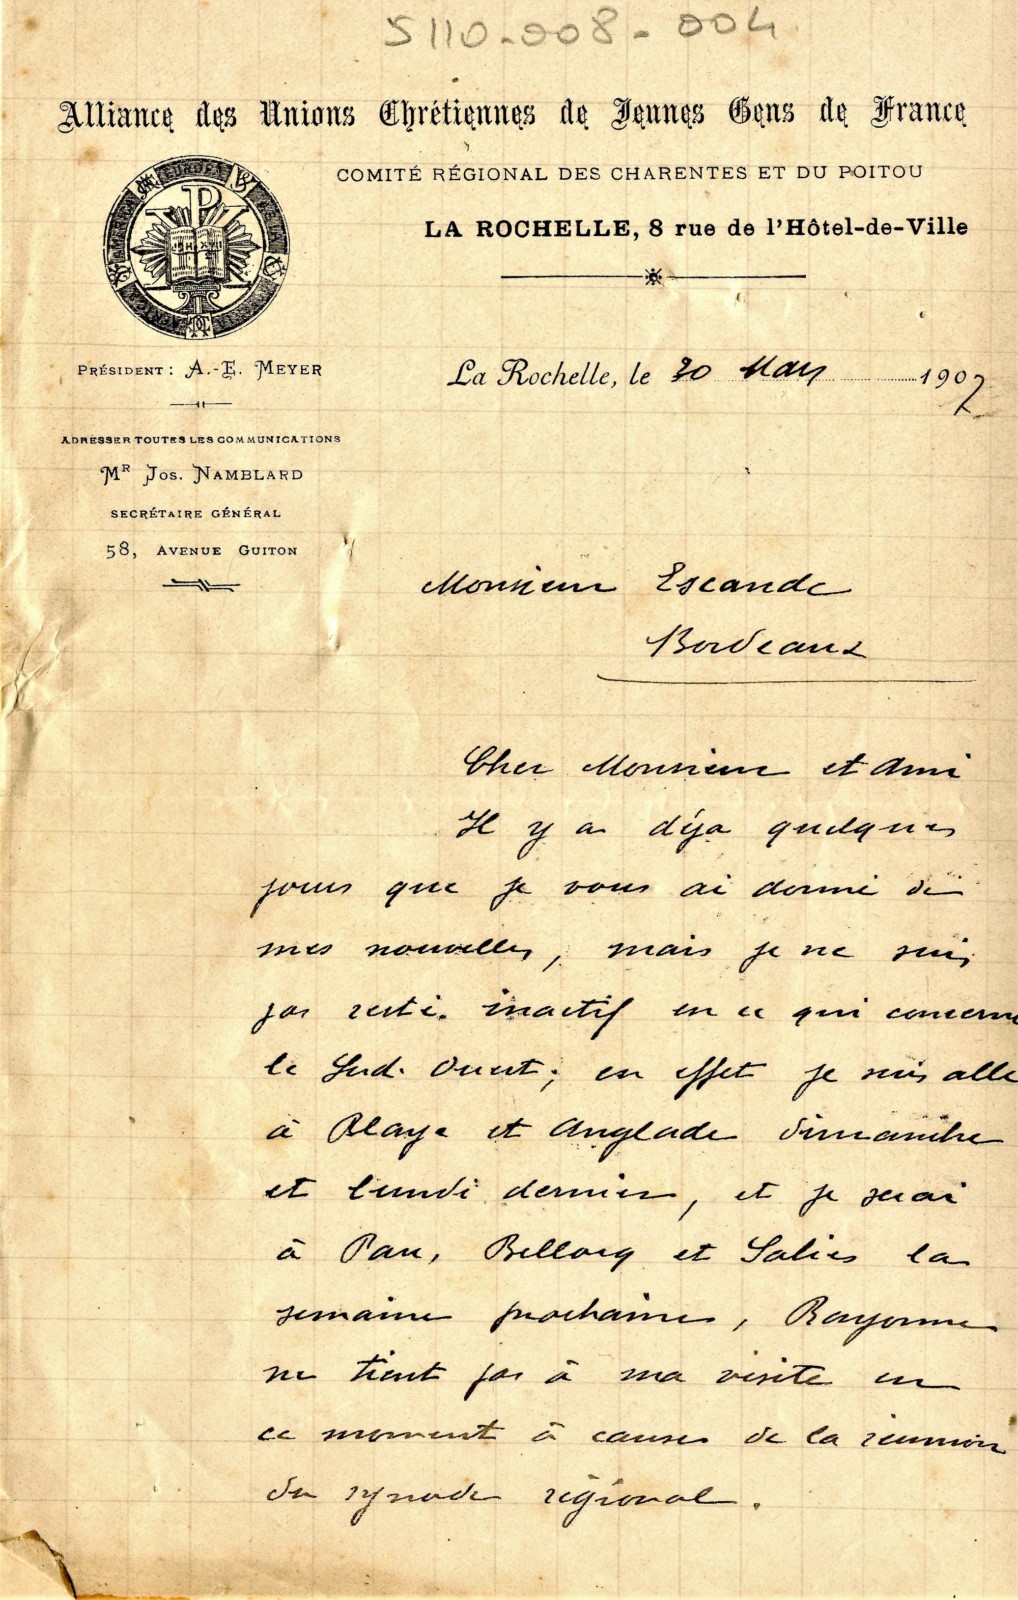 5110-008-004
Alliance des Unions Chrétiennes de Jeunes Gens de France
COMITÉ RÉGIONAL DES CHARENTES ET DU POITOU
LA ROCHELLE, 8 rue de l'Hôtel-de-Ville
PRÉSIDENT : A.-E. MEYER
La Rochelle, le 30 Mars 1907
ADRESSER TOUTES LES COMMUNICATIONS
MR JOS. NAMBLARD
SECRÉTAIRE GÉNÉRAL
58, AVENUE GUITON
Monsieur Escande
Bordeaux
Cher Monsieur et Ami
Il y a déja quelques
jours que je vous ai donné de
mes nouvelles, mais je ne suis
pas resté inactif en ce qui concerne
le Sud-Ouest ; en effet je suis allé
à Blaye et Anglade dimanche
et lundi dernier, et je serai
à Pau, Bellocq et Salies la
semaine prochaine, Bayonne
ne tient pas à ma visite en
ce moment à cause de la réunion
du synode régional.